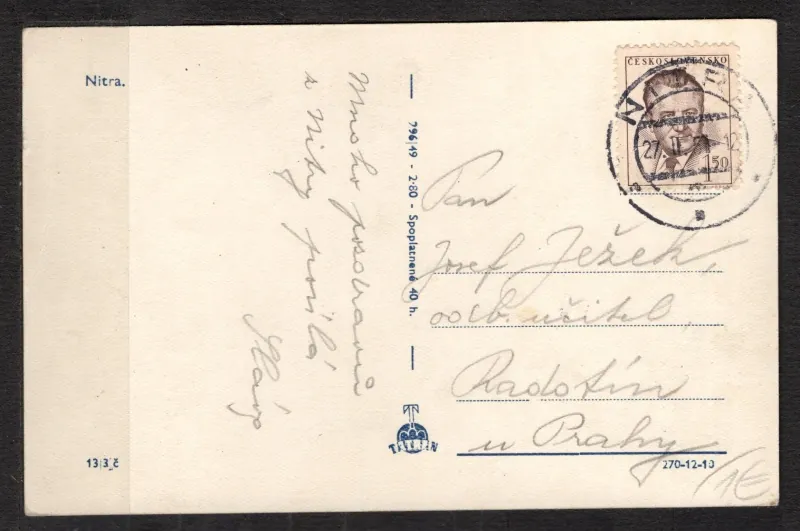 Nitra.
Mnoho pozdravů
z Nitry posílá
796/49 - 2·80 - Spoplatnené 40 h.
ČESKOSLOVENSKO
1·50
NITRA
27 II
12
Pan
Josef Ježek,
odb. učitel,
Radotín
u Prahy
TATRAN
13|3_č
270-12-10
1€